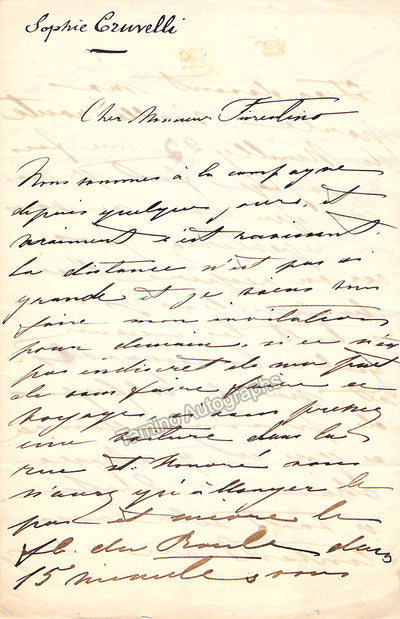 Sophie Cruvelli
Cher Monsieur Fiorentino
Nous sommes à la campagne
depuis quelques jours, et
vraiment c'est ravissant.
la distance n'est pas si
grande et je viens vous
faire mon invitation
pour demain, si ce n'est
pas indiscret de ma part
de vous faire faire ce
voyage, si vous prenez
une voiture dans la
rue St. Honoré vous
n'avez qu'à allonger le
pas et suivre le
fb. du Roule, dans
15 minutes vous
Tamino Autographs